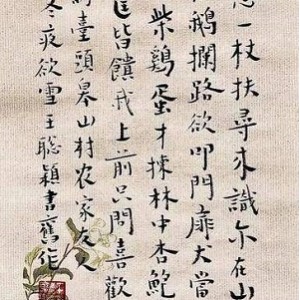 一杖扶尋求識亦在山
鵝攔路欲叩門扉犬當
柴鷄蛋才揀林中杏鮑
筐皆饋我上前只問喜歡
臺頭皋山村农家之人
冬夜欲雪王聪颖書舊作